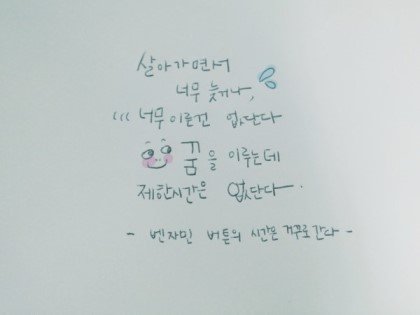 살아가면서
너무 늦거나,
너무 이른건 없단다
꿈을 이루는데
제한시간은 없단다.
- 벤자민 버튼의 시간은 거꾸로간다 -